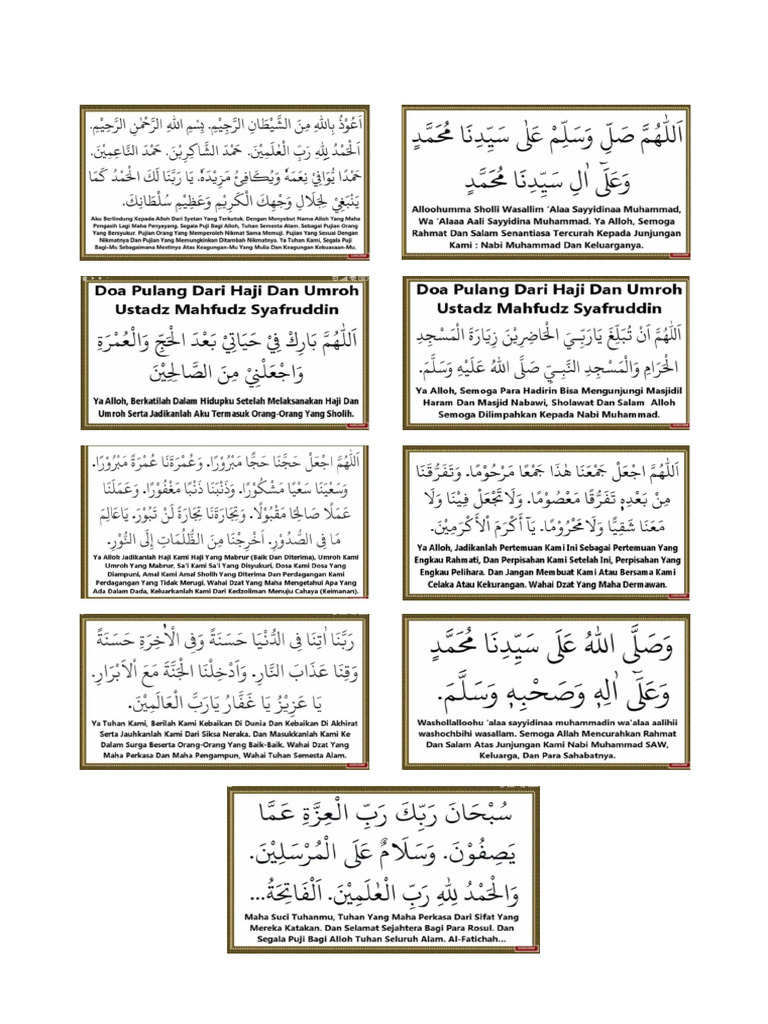 اَعُوْذُ بِاللهِ مِنَ الشَّيْطَانِ الرَّجِيْمِ. بِسْمِ اللهِ الرَّحْمٰنِ الرَّحِيْمِ.
اَلْحَمْدُ لِلهِ رَبِّ الْعٰلَمِيْنَ. حَمْدَ الشَّاكِرِيْنَ. حَمْدَ النَّاعِمِيْنَ.
حَمْدًا يُوَافِيْ نِعَمَهٗ وَيُكَافِئُ مَزِيْدَهٗ. يَا رَبَّنَا لَكَ الْحَمْدُ كَمَا
يَنْبَغِيْ لِجَلَالِ وَجْهِكَ الْكَرِيْمِ وَعَظِيْمِ سُلْطَانِكَ.
Aku Berlindung Kepada Alloh Dari Syetan Yang Terkutuk. Dengan Menyebut Nama Alloh Yang Maha
Pengasih Lagi Maha Penyayang. Segala Puji Bagi Alloh, Tuhan Semesta Alam. Sebagai Pujian Orang
Yang Bersyukur. Pujian Orang Yang Memperoleh Nikmat Sama Memuji. Pujian Yang Sesuai Dengan
Nikmatnya Dan Pujian Yang Memungkinkan Ditambah Nikmatnya. Ya Tuhan Kami, Segala Puji
Bagi-Mu Sebagaimana Mestinya Atas Keagungan-Mu Yang Mulia Dan Keagungan Kekuasaan-Mu.
اَللّٰهُمَّ صَلِّ وَسَلِّمْ عَلٰى سَيِّدِنَا مُحَمَّدٍ
وَعَلٰٓى اٰلِ سَيِّدِنَا مُحَمَّدٍ
Alloohumma Sholli Wasallim 'Alaa Sayyidinaa Muhammad,
Wa 'Alaaa Aali Sayyidina Muhammad. Ya Alloh, Semoga
Rahmat Dan Salam Senantiasa Tercurah Kepada Junjungan
Kami : Nabi Muhammad Dan Keluarganya.
Doa Pulang Dari Haji Dan Umroh
Ustadz Mahfudz Syafruddin
اَللّٰهُمَّ بَارِكْ فِيْ حَيَاتِيْ بَعْدَ الْحَجِّ وَالْعُمْرَةِ
وَاجْعَلْنِيْ مِنَ الصَّالِحِيْنَ
Ya Alloh, Berkatilah Dalam Hidupku Setelah Melaksanakan Haji Dan
Umroh Serta Jadikanlah Aku Termasuk Orang-Orang Yang Sholih.
Doa Pulang Dari Haji Dan Umroh
Ustadz Mahfudz Syafruddin
اَللّٰهُمَّ اَنْ تُبَلِّغَ يَارَبِّيَ الْحَاضِرِيْنَ زِيَارَةَ الْمَسْجِدِ
الْحَرَامِ وَالْمَسْجِدِ النَّبِيِّ صَلَّى اللهُ عَلَيْهِ وَسَلَّمَ.
Ya Alloh, Semoga Para Hadirin Bisa Mengunjungi Masjidil
Haram Dan Masjid Nabawi, Sholawat Dan Salam Alloh
Semoga Dilimpahkan Kepada Nabi Muhammad.
اَللّٰهُمَّ اجْعَلْ حَجَّنَا حَجًّا مَبْرُوْرًا. وَعُمْرَتَنَا عُمْرَةً مَبْرُوْرًا.
وَسَعْيَنَا سَعْيًا مَشْكُوْرًا. وَذَنْبَنَا ذَنْبًا مَغْفُوْرًا. وَعَمَلَنَا
عَمَلًا صَالِحًا مَقْبُوْلًا. وَتِجَارَتَنَا تِجَارَةً لَنْ تَبُوْرَ. يَاعَالِمَ
مَا فِى الصُّدُوْرِ. اَخْرِجْنَا مِنَ الظُّلُمَاتِ اِلَى النُّوْرِ.
Ya Alloh Jadikanlah Haji Kami Haji Yang Mabrur (Baik Dan Diterima), Umroh Kami
Umroh Yang Mabrur, Sa'i Kami Sa'i Yang Disyukuri, Dosa Kami Dosa Yang
Diampuni, Amal Kami Amal Sholih Yang Diterima Dan Perdagangan Kami
Perdagangan Yang Tidak Merugi. Wahai Dzat Yang Maha Mengetahui Apa Yang
Ada Dalam Dada, Keluarkanlah Kami Dari Kedzoliman Menuju Cahaya (Keimanan).
اَللّٰهُمَّ اجْعَلْ جَمْعَنَا هٰذَا جَمْعًا مَرْحُوْمًا. وَتَفَرُّقَنَا
مِنْ بَعْدِهٖ تَفَرُّقًا مَعْصُوْمًا. وَلَا تَجْعَلْ فِيْنَا وَلَا
مَعَنَا شَقِيًّا وَلَا مَحْرُوْمًا. يَآ اَكْرَمَ الْاَكْرَمِيْنَ.
Ya Alloh, Jadikanlah Pertemuan Kami Ini Sebagai Pertemuan Yang
Engkau Rahmati, Dan Perpisahan Kami Setelah Ini, Perpisahan Yang
Engkau Pelihara. Dan Jangan Membuat Kami Atau Bersama Kami
Celaka Atau Kekurangan. Wahai Dzat Yang Maha Dermawan.
رَبَّنَا اٰتِنَا فِى الدُّنْيَا حَسَنَةً وَفِى الْاٰخِرَةِ حَسَنَةً
وَقِنَا عَذَابَ النَّارِ. وَاَدْخِلْنَا الْجَنَّةَ مَعَ الْاَبْرَارِ.
يَا عَزِيْزُ يَا غَفَّارُ يَارَبَّ الْعَالَمِيْنَ.
Ya Tuhan Kami, Berilah Kami Kebaikan Di Dunia Dan Kebaikan Di Akhirat
Serta Jauhkanlah Kami Dari Siksa Neraka. Dan Masukkanlah Kami Ke
Dalam Surga Beserta Orang-Orang Yang Baik-Baik. Wahai Dzat Yang
Maha Perkasa Dan Maha Pengampun, Wahai Tuhan Semesta Alam.
وَصَلَّى اللهُ عَلَى سَيِّدِنَا مُحَمَّدٍ
وَعَلٰٓى اٰلِهٖ وَصَحْبِهٖ وَسَلَّمَ.
Washollalloohu 'alaa sayyidinaa muhammadin wa'alaa aalihii
washochbihi wasallam. Semoga Allah Mencurahkan Rahmat
Dan Salam Atas Junjungan Kami Nabi Muhammad SAW,
Keluarga, Dan Para Sahabatnya.
سُبْحَانَ رَبِّكَ رَبِّ الْعِزَّةِ عَمَّا
يَصِفُوْنَ. وَسَلَامٌ عَلَى الْمُرْسَلِيْنَ.
وَالْحَمْدُ لِلهِ رَبِّ الْعٰلَمِيْنَ. اَلْفَاتِحَةُ...
Maha Suci Tuhanmu, Tuhan Yang Maha Perkasa Dari Sifat Yang
Mereka Katakan. Dan Selamat Sejahtera Bagi Para Rosul. Dan
Segala Puji Bagi Alloh Tuhan Seluruh Alam. Al-Fatichah...